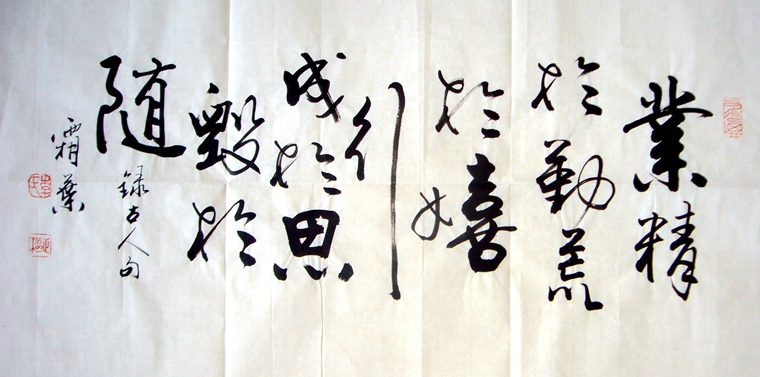 業精
於勤荒
於嬉
行
成於思
毀於
随
録古人句
霜葉